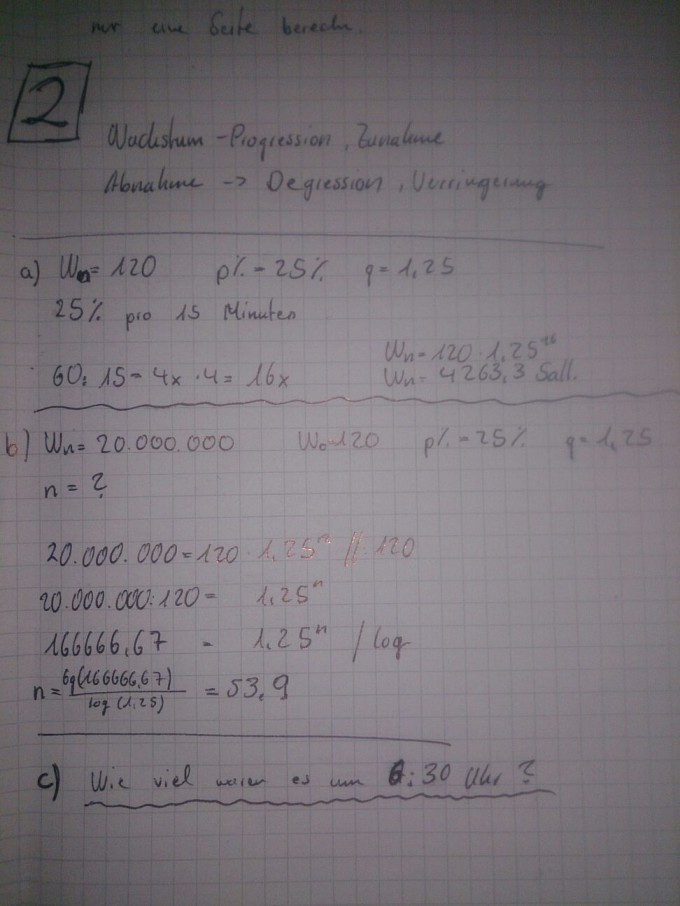 nur eine Seite berechn.
2
Wachstum - Progression, Zunahme
Abnahme -> Degression, Verringerung
a) Wn = 120 p% = 25% q = 1,25
25% pro 15 Minuten
Wn = 120 · 1,25^16
60 : 15 = 4x · 4 = 16x Wn = 4263,3 Sall.
b) Wn = 20.000.000 Wo = 120 p% = 25% q = 1,25
n = ?
20.000.000 = 120 · 1,25^n //: 120
20.000.000 : 120 = 1,25^n
166666,67 = 1,25^n / log
n = log(166666,67) / log(1,25) = 53,9
c) Wie viel waren es um 6:30 Uhr ?